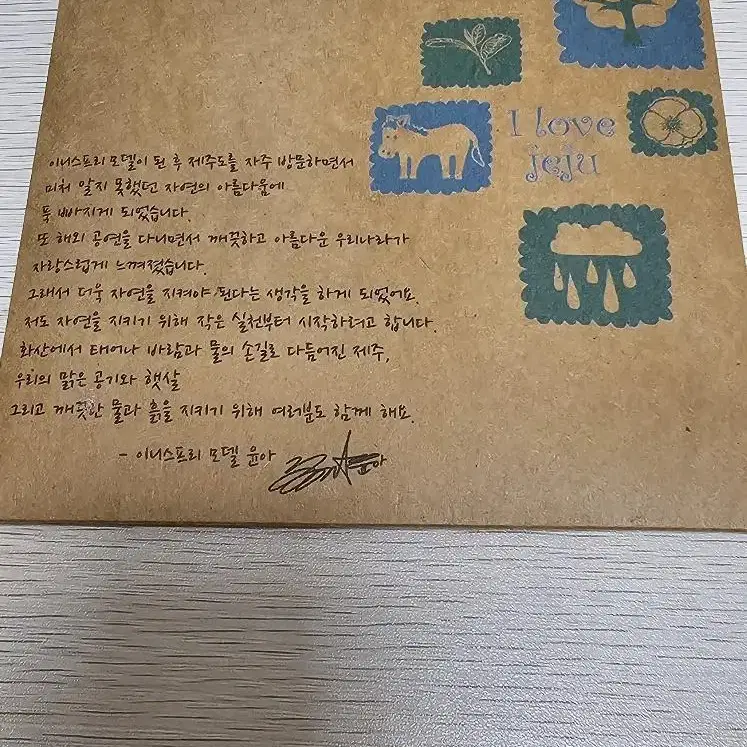 I love
jeju
이니스프리 모델이 된 후 제주도를 자주 방문하면서
미처 알지 못했던 자연의 아름다움에
푹 빠지게 되었습니다.
또 해외 공연을 다니면서 깨끗하고 아름다운 우리나라가
자랑스럽게 느껴졌습니다.
그래서 더욱 자연을 지켜야 된다는 생각을 하게 되었어요.
저도 자연을 지키기 위해 작은 실천부터 시작하려고 합니다.
화산에서 태어나 바람과 물의 손길로 다듬어진 제주,
우리의 맑은 공기와 햇살
그리고 깨끗한 물과 흙을 지키기 위해 여러분도 함께 해요.
- 이니스프리 모델 윤아
윤아